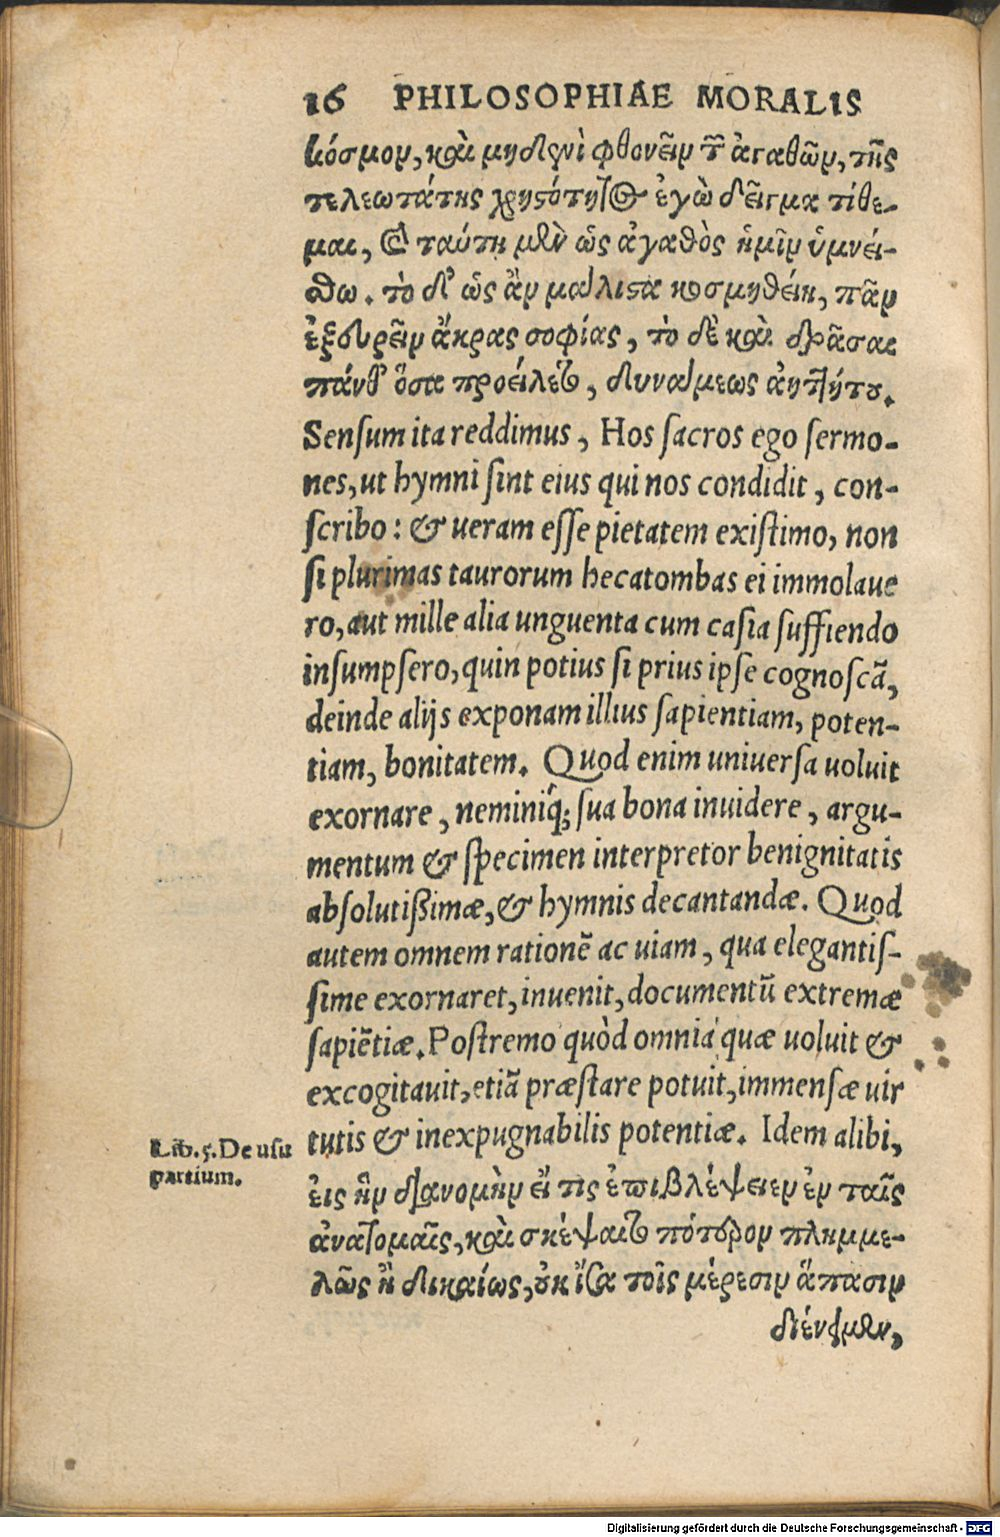 16 PHILOSOPHIAE MORALIS
κόσμον, καὶ μηδενὶ φθονεῖν τῶν ἀγαθῶν, τῆς
τελεωτάτης χρηστότητος ἐγὼ δεῖγμα τίθε-
μαι, καὶ ταύτῃ μὲν ὡς ἀγαθὸς ἡμῖν ὑμνεί-
σθω. τὸ δ' ὡς ἂν μάλιστα κοσμηθείη, πᾶν
ἐξευρεῖν ἄκρας σοφίας, τὸ δὲ καὶ δρᾶσαι
πάνθ' ὅσα προείλετο, δυνάμεως ἀηττήτου.
Senſum ita reddimus, Hos ſacros ego ſermo-
nes, ut hymni ſint eius qui nos condidit, con-
ſcribo: & ueram eſſe pietatem exiſtimo, non
ſi plurimas taurorum hecatombas ei immolaue
ro, aut mille alia unguenta cum caſia ſuffiendo
inſumpſero, quin potius ſi prius ipſe cognoſcã,
deinde alijs exponam illius ſapientiam, poten-
tiam, bonitatem. Quod enim uniuerſa uoluit
exornare, neminiq́; ſua bona inuidere, argu-
mentum & ſpecimen interpretor benignitatis
abſolutißimæ, & hymnis decantandæ. Quod
autem omnem rationẽ ac uiam, qua elegantiſ-
ſime exornaret, inuenit, documentũ extremæ
ſapiẽtiæ. Poſtremo quòd omnia quæ uoluit &
excogitauit, etiã præſtare potuit, immenſæ uir
tutis & inexpugnabilis potentiæ. Idem alibi,
Lib. 5. De uſu
partium.
εἰς ἣν διανομὴν εἴ τις ἐπιβλέψειεν ἐν ταῖς
ἀνατομαῖς, καὶ σκέψαιτο πότερον πλημμε-
λῶς ἢ δικαίως, οὐκ ἴσα τοῖς μέρεσιν ἅπασιν
διένειμεν,
Digitalisierung gefördert durch die Deutsche Forschungsgemeinschaft - DFG